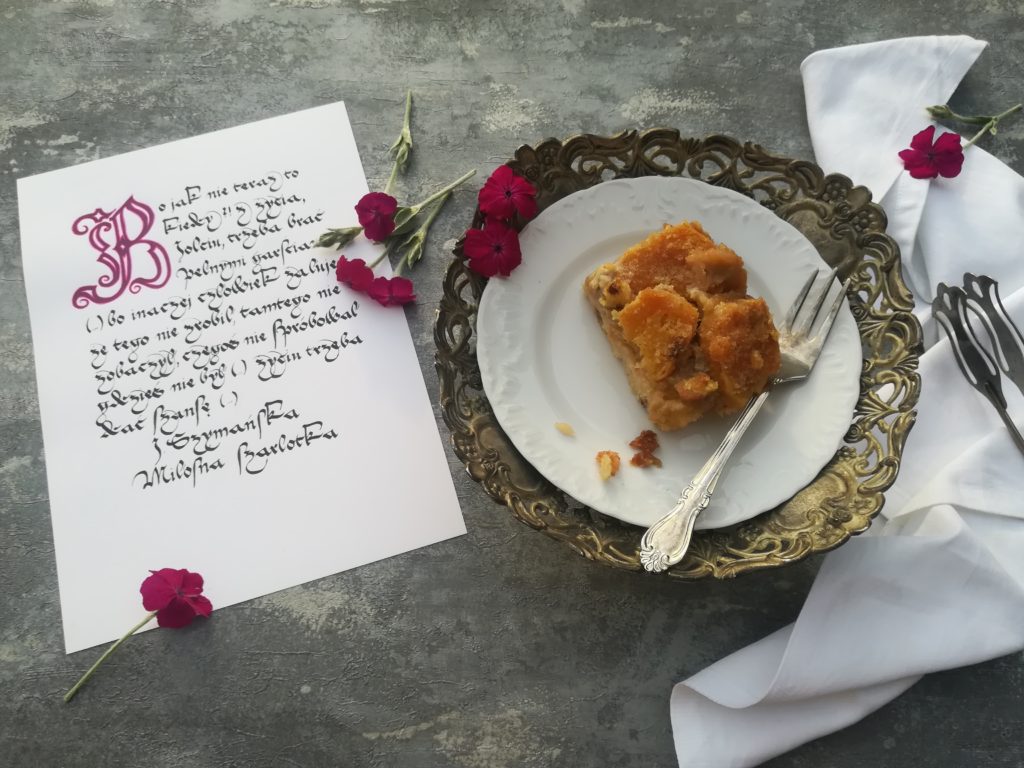 Bo jak nie teraz to
kiedy?! Z życia,
Jolciu, trzeba brać
pełnymi garścia
(..) bo inaczej człowiek żałuje,
że tego nie zrobił tamtego nie
zobaczył, czegoś nie spróbował
gdzieś nie był (..) życiu trzeba
dać szansę (..)
J Szymańska
Miłosna szarlotka